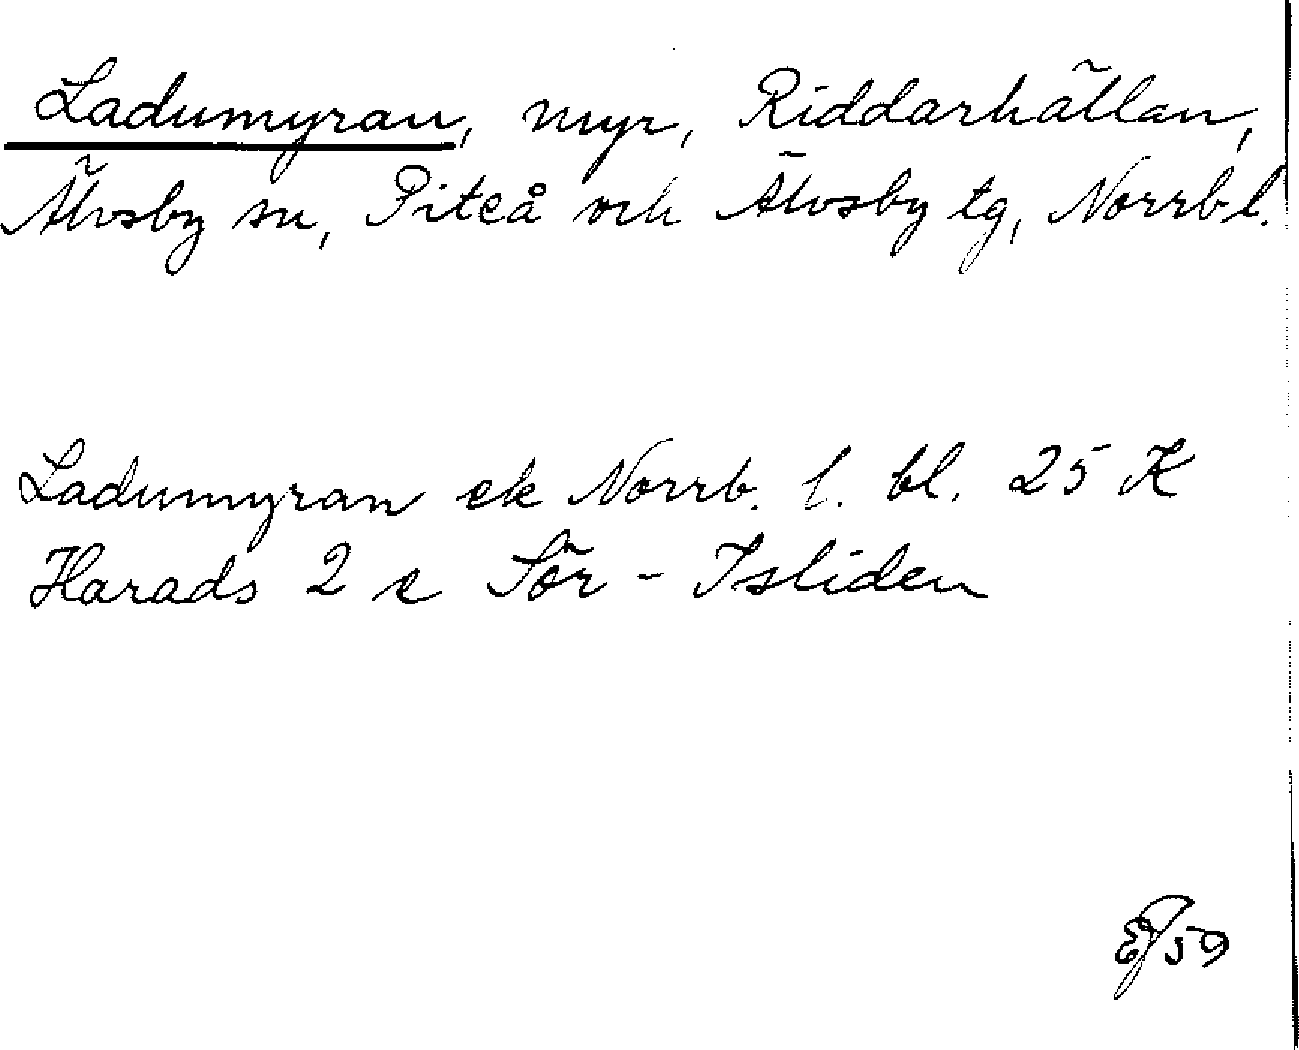 Ladumyran, myr, Riddarhällan,
Älvsby sn, Piteå och Älvsby tg, Norrb l.
Ladumyran ek Norrb. l. bl. 25 K
Harads 2 c Sör-Isliden
59